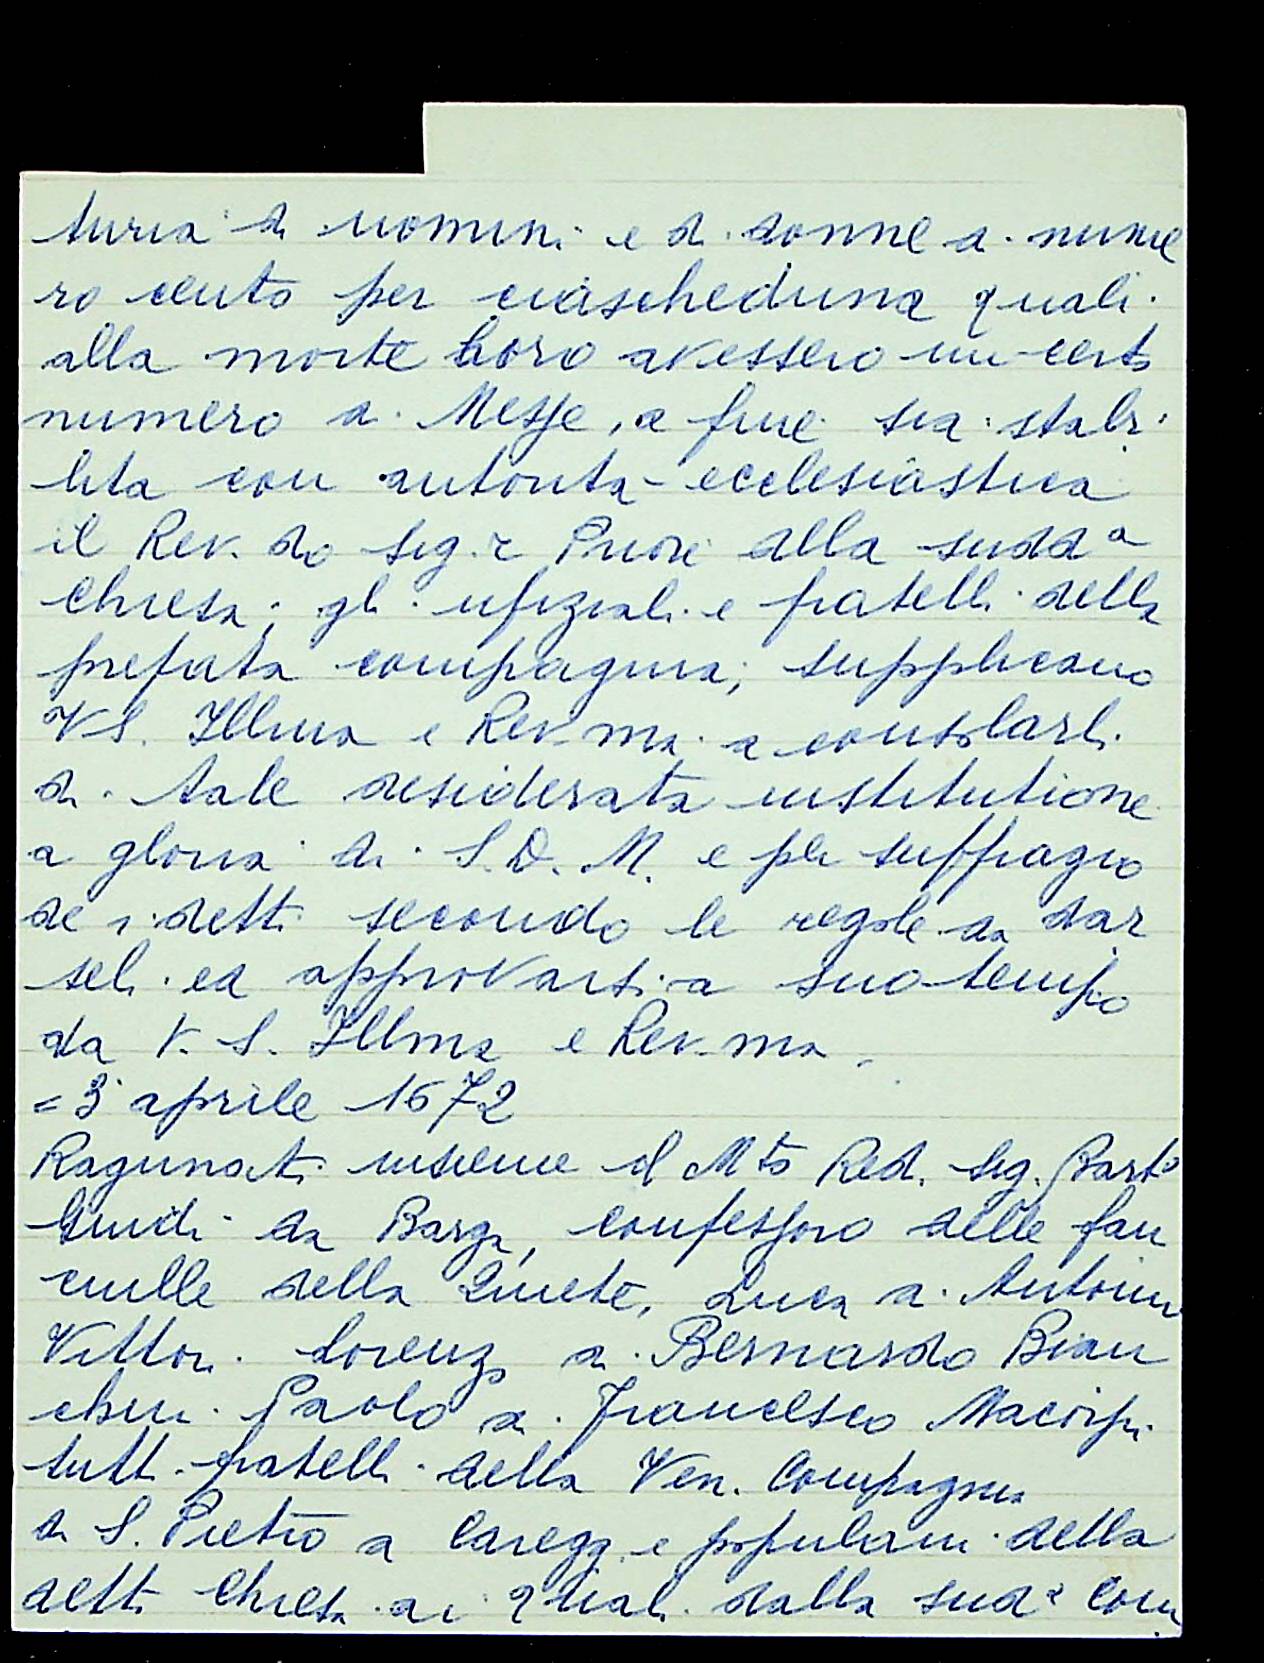 turia di uomini e di donne a nume
ro cento per ciascheduna quali
alla morte loro avessero un certo
numero di Messe, e fine sia stabi
lita con autorita ecclesiastica
il Rev.do Sig.r Priore della sudd.a
Chiesa; gli ufiziali e fratelli della
prefata compagnia; supplicano
VS. Illma e Rev.ma a consolarli
di tale desiderata institutione
a gloria di S.D.M. e per suffragio
de i detti secondo le regole da dar
seli ed approvarsi a suo tempo
da V.S. Illma e Rev.ma.
= 3 aprile 1672
Ragunati insieme il Mto Red. Sig. Barto
Guidi da Barga, confessoro delle fan
ciulle della Quiete, Luca di Antonio
Vittori Lorenzo di Bernardo Bian
chini Paolo di Francesco
tutti fratelli della Ven. Compagnia
di S. Pietro a Careggi e populani della
detta Chiesa ai quali dalla sud.a Com